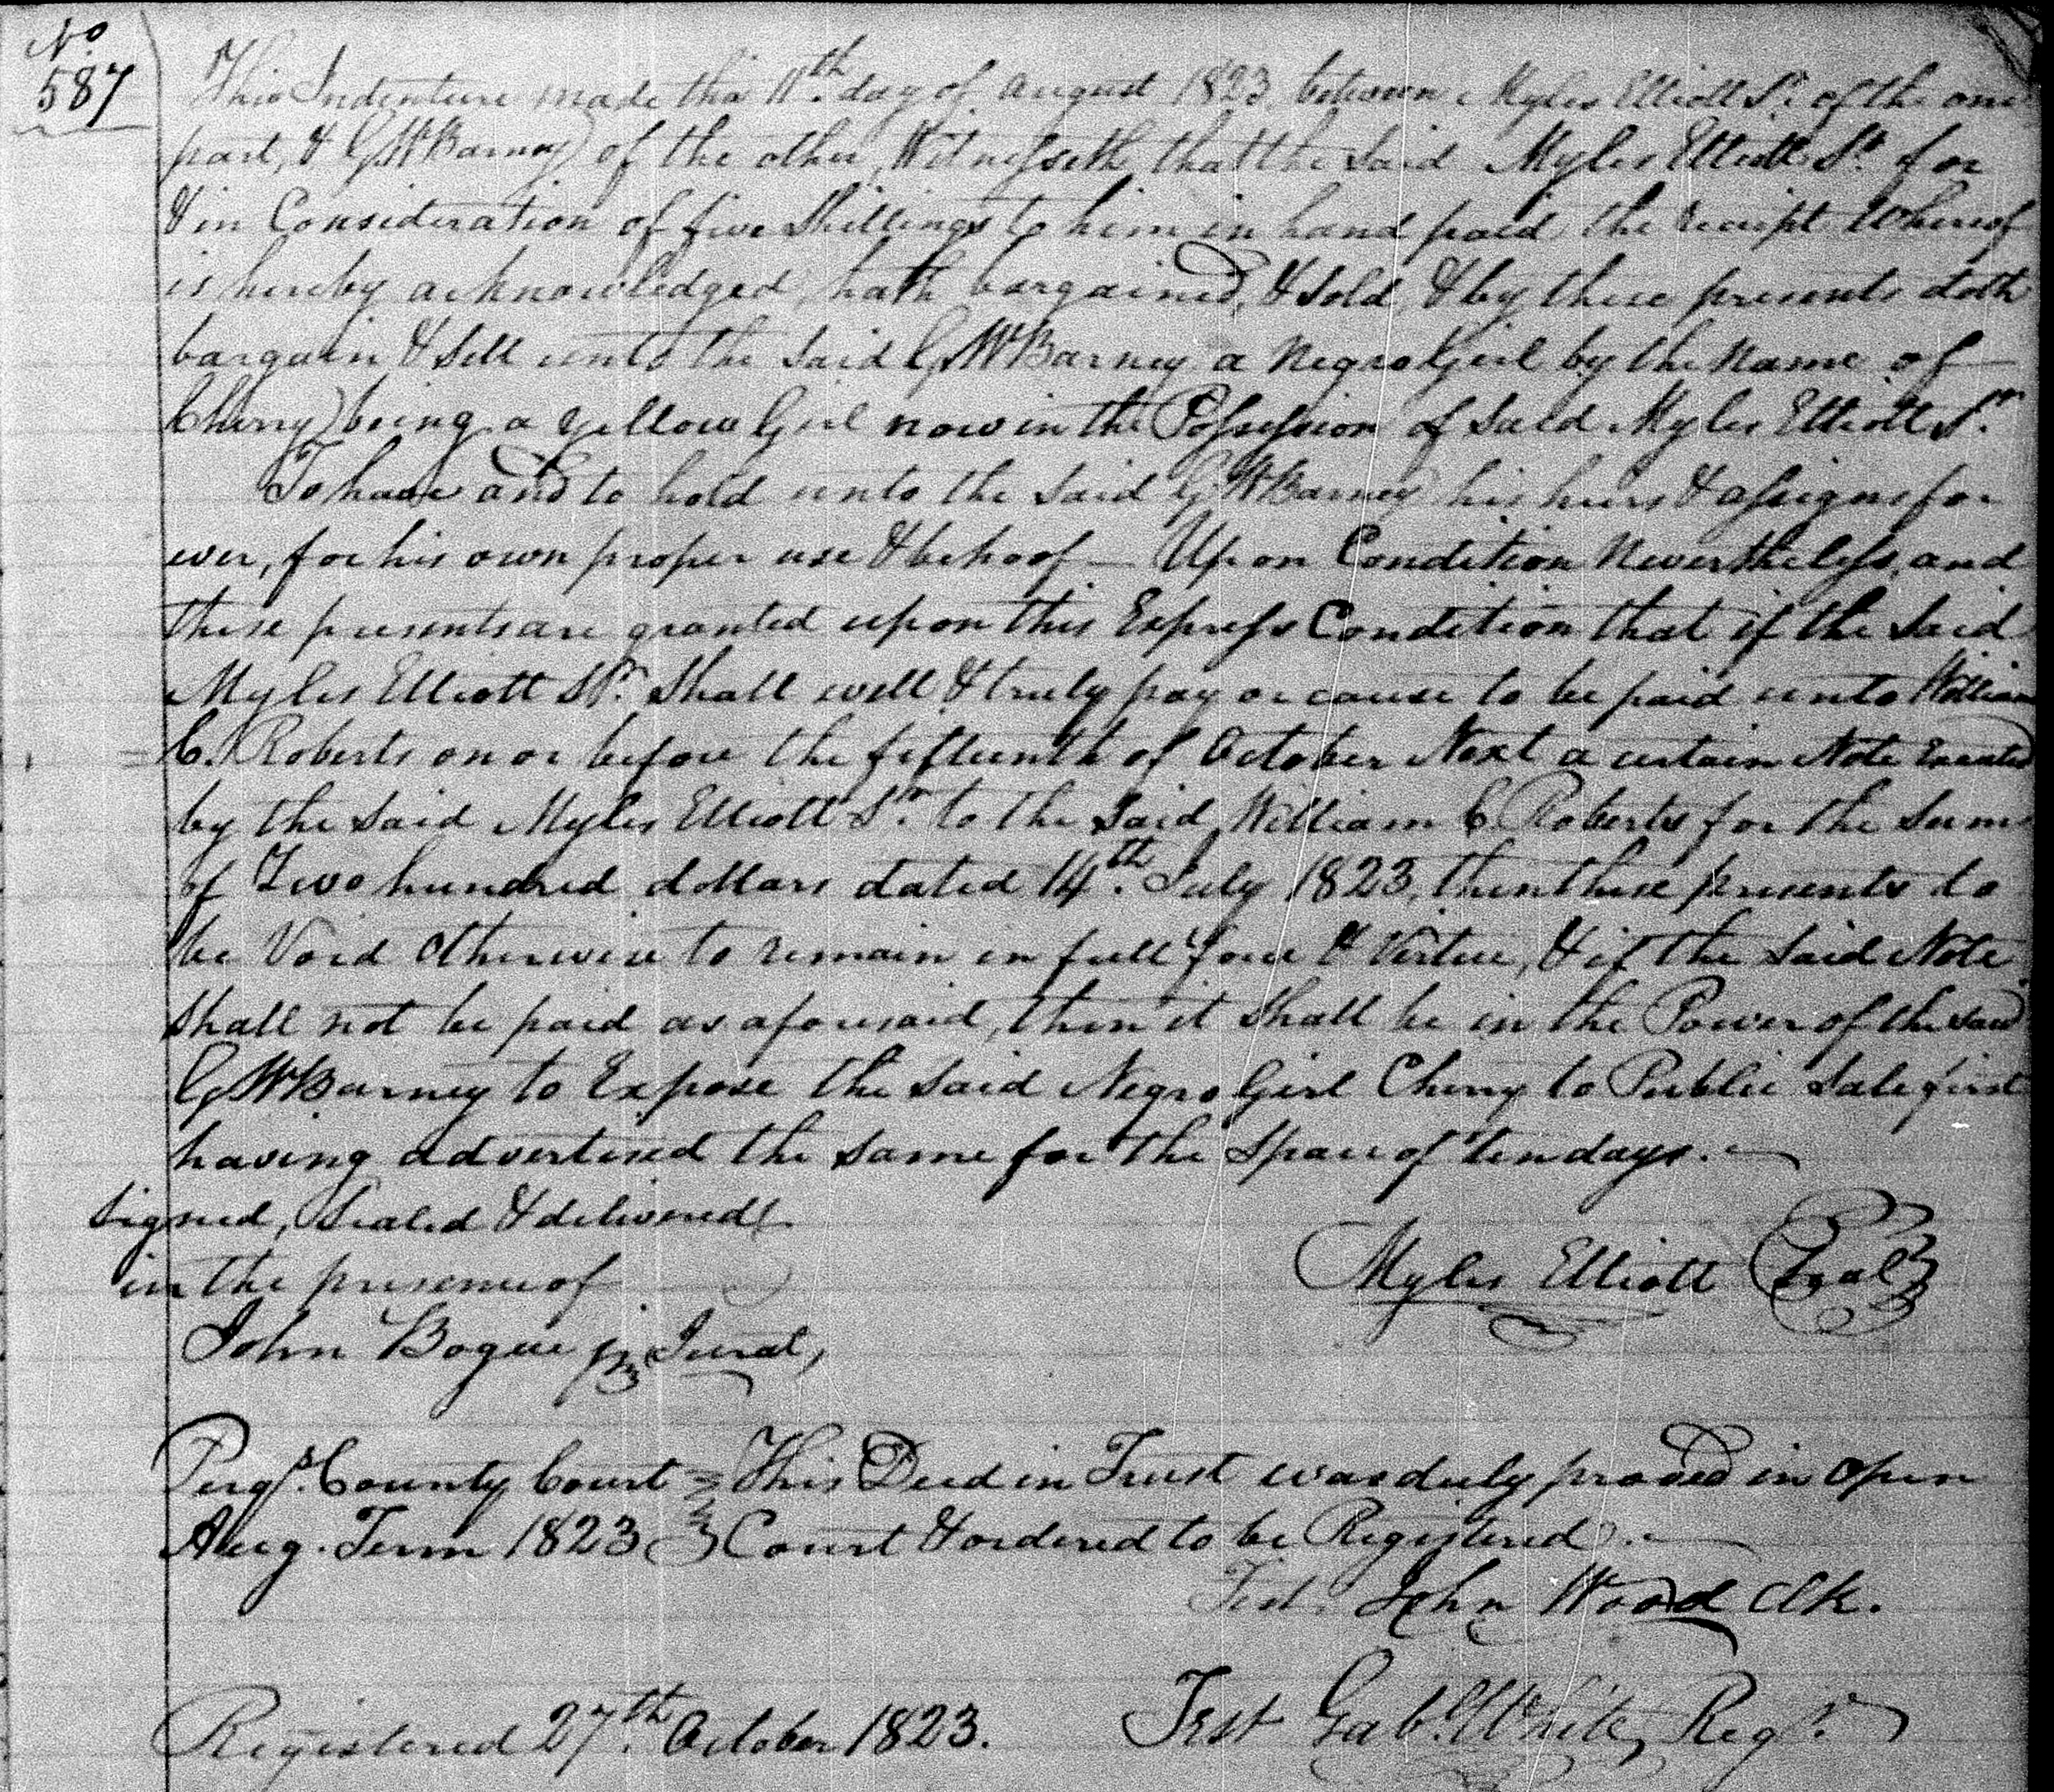 No
587
This Indenture made this 11th day of August 1823 between Myles Elliott Sr. of the one
part, & G W Barney of the other, Witnesseth that the said Myles Elliott Sr. for
& in Consideration of five Shillings to him in hand paid the receipt Whereof
is hereby acknowledged, hath bargained, & sold, & by these presents doth
bargain & sell unto the said G W Barney a Negro Girl by the Name of
Cherry being a yellow Girl now in the Possession of said Myles Elliott Sr.
To have and to hold unto the said G W Barney his heirs & assigns for
ever, for his own proper use & behoof — Upon Condition Nevertheless, and
these presents are granted upon this Express Condition that if the Said
Myles Elliott Sr. Shall well & truly pay or cause to be paid unto William
C. Roberts on or before the fifteenth of October Next a certain Note Executed
by the said Myles Elliott Sr. to the Said William C. Roberts for the Sum
of Two hundred dollars dated 14th. July 1823, then these presents to
be Void otherwise to remain in full force & Virtue, & if the Said Note
Shall not be paid as aforesaid, then it Shall be in the Power of the said
G W Barney to Expose the Said Negro Girl Cherry to Public Sale first
having advertised the same for the Space of ten days. —
Signed, Sealed & delivered
in the presence of
Myles Elliott Seal
John Bogue jr Jurat,
Perqs. County Court This Deed in Trust was duly proved in open
Aug. Term 1823 Court & ordered to be Registered. —
Test. John Wood Clk.
Registered 27th. October 1823. Test Gab. White, Regr.